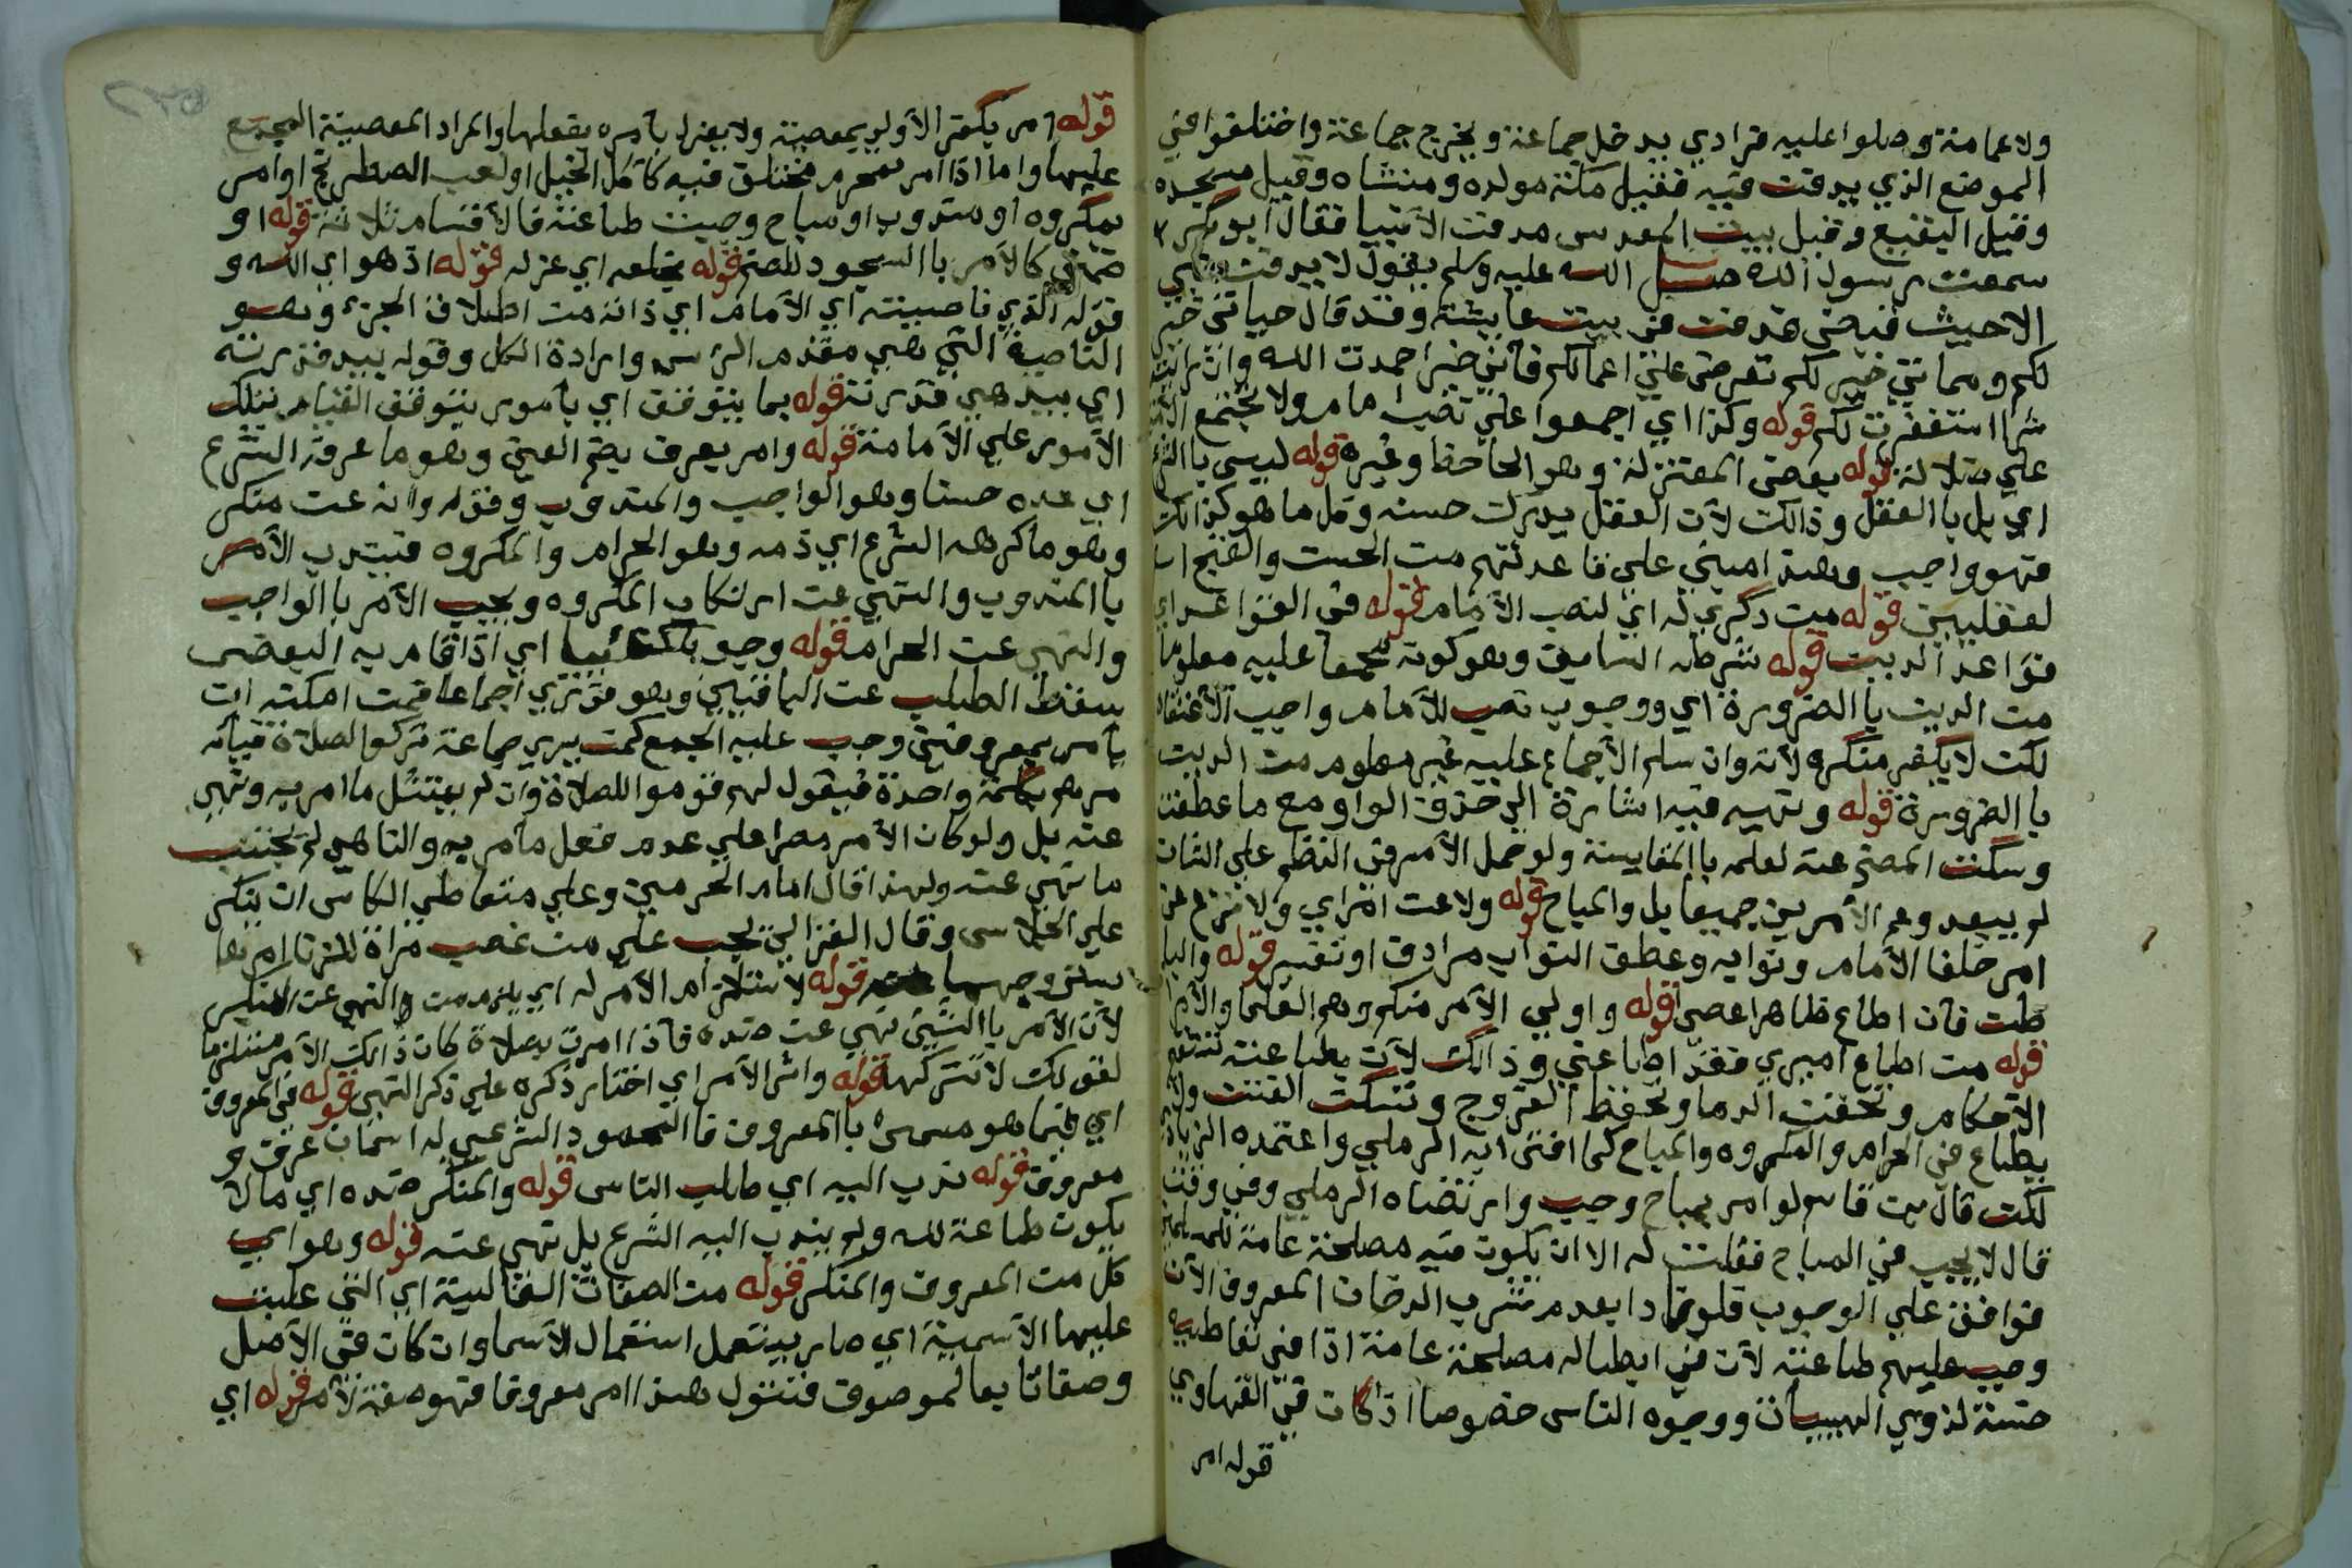 ولا عمامة وصلوا عليه فرادي يدخل جماعة ويخرج جماعة واختلفوا في
الموضع الذي يدفن فيه فقيل مكة مولده ومنشاه وقيل مسجده
وقيل البقيع وقيل بيت المقدس مدفن الأنبيا فقال أبو بكر
سمعت رسول الله صلي الله عليه وسلم يقول لا يدفن نبي
الا حيث قبض فدفن في بيت عايشة وقد قال حياتي خير
لكم ومماتي خير لكم تعرض علي اعمالكم فان خيرا حمدت الله وان رايت
شرا استغفرت لكم قوله وكذا اي اجمعوا علي نصب امام ولا تجتمع الأمة
علي ضلالة قوله بعض المعتزلة وهو الجاحظ وغيره قوله ليس با الشرع
اي بل با العقل وذالك لأن العقل يدرك حسنه وكل ما هو كذالك
فهو واجب وهذا مبني علي قاعدتهم من الحسن والقبح ا
لعقليين قوله من ذكري له اي لنصب الأمام قوله في القواعد اي
قواعد الدين قوله شرطه السابق وهو كونه مجمعا عليه معلوما
من الدين با الضرورة اي ووجوب نصب الأمام واجب الأعتقاد
لكن لا يكفر منكره لأنه وان سلم الأجماع عليه غير معلوم من الدين
با الضرورة قوله ونهيه فيه اشارة الي حذف الواو مع ما عطفت
وسكت المصنف عنه لعلمه با المقايسة ولو حمل الأمر في النظم علي الشان
لم يبعد وعم الأمرين جميعا بل والمباح قوله ولا عن امراي ولا تزع عن
امر خلفا الأمام ونوابه وعطف النواب مرادف او تفسير قوله والبا
طن فان اطاع ظاهرا عصي قوله واولي الأمر منكم وهم العلما والأمرا
قوله من اطاع اميري فقد اطاعني وذالك لأن بطاعته تنتظم
الأحكام وتحقن الدما وتحفظ الفروج وتسكن الفتن ولا
يطاع في الحرام والمكروه والمباح كما افتي به الرملي واعتمده الزيادي
لكن قال سم لو امر بمباح وجب وارتضاه الرملي وفي وقت
قال لا يجب في المباح فقلت له الا ان يكون فيه مصلحة عامة للمسلمين
فوافق علي الوجوب فلو نادا بعدم شرب الدخان المعروف الآن
وجب عليهم طاعته لأن في ابطاله مصلحة عامة اذا في تعاطيه
خسة لذوي الهيبان ووجوه الناس خصوصا اذا كان في القهاوي
قوله امر
قوله امر بكفر الأولي بمعصية ولا يعزل بأمره بفعلها والمراد المعصية المجمع
عليها واما اذا امر بمحرم مختلف فيه كأكل الخيل او لعب الشطرنج او امر
بمكروه او مندوب او مباح وجبت طاعته فالأقسام ثلاثة قوله او
ضمني كالأمر با السجود للصنم قوله بخلعه اي عزله قوله اذ هو اي الله و
قوله الذي ناصيته اي الأمام اي ذاته من اطلاق الجزء وهو
الناصية التي هي مقدم الراس وارادة الكل وقوله بيد قدرته
اي بيد هي قدرته قوله بما يتوقف اي بأمور يتوقف القيام بتلك
الأمور علي الأمامة قوله وامر بعرف بضم العين وهو ما عرفه الشرع
اي عده حسنا وهو الواجب والمندوب وقوله وانه عن منكر
وهو ما كرهه الشرع اي ذمه وهو الحرام والمكروه فيندب الأمر
با المندوب والنهي عن ارتكاب المكروه ويجب الأمر با الواجب
والنهي عن الحرام قوله وجوبا كفائيا اي اذا قام به البعض
سقط الطلب عن الباقيين وهو فوري اجماعا فمن امكنه ان
يأمر بمعروفين وجب عليه الجمع كمن يري جماعة تركوا الصلاة فيأ
مرهم بكلمة واحدة فيقول لهم قوموا للصلاة وان لم يمتثل ما امر به ونهي
عنه بل ولو كان الأمر مصرا علي عدم فعل ما مر به والناهي لم يجتنب
ما نهي عنه ولهذا قال امام الحرمين وعلي متعاطي الكاس ان ينكر
علي الجلاس وقال الغزالي يجب علي من غصب مراة للزنا امرها
بستر وجهها عنه قوله لأستلزام الأمر له اي يلزم من والنهي عن المنكر
لأن الأمر با الشيء نهي عن ضده فاذا امرت بصلاة كان ذالك الأمر مستلزما
لقولك لا تتركها قوله واثر الأمر اي اختار ذكره علي ذكر النهي قوله في المعروف
اي فيما هو مسمي با المعروف فا المحمود الشرعي له اسمان عرف و
معروف قوله ندب اليه اي طلب الناس قوله والمنكر ضده اي ما لا
يكون طاعة لله ولم يندب اليه الشرع بل نهي عنه قوله وهو اي
كل من المعروف والمنكر قوله من الصفات الغالبية اي التي غلبت
عليها الأسمية اي صار يستعمل استعمال الأسما وان كان في الأصل
وصفا تابعا لموصوف فتقول هذا امر معروف فهو صفة لأمر قوله اي